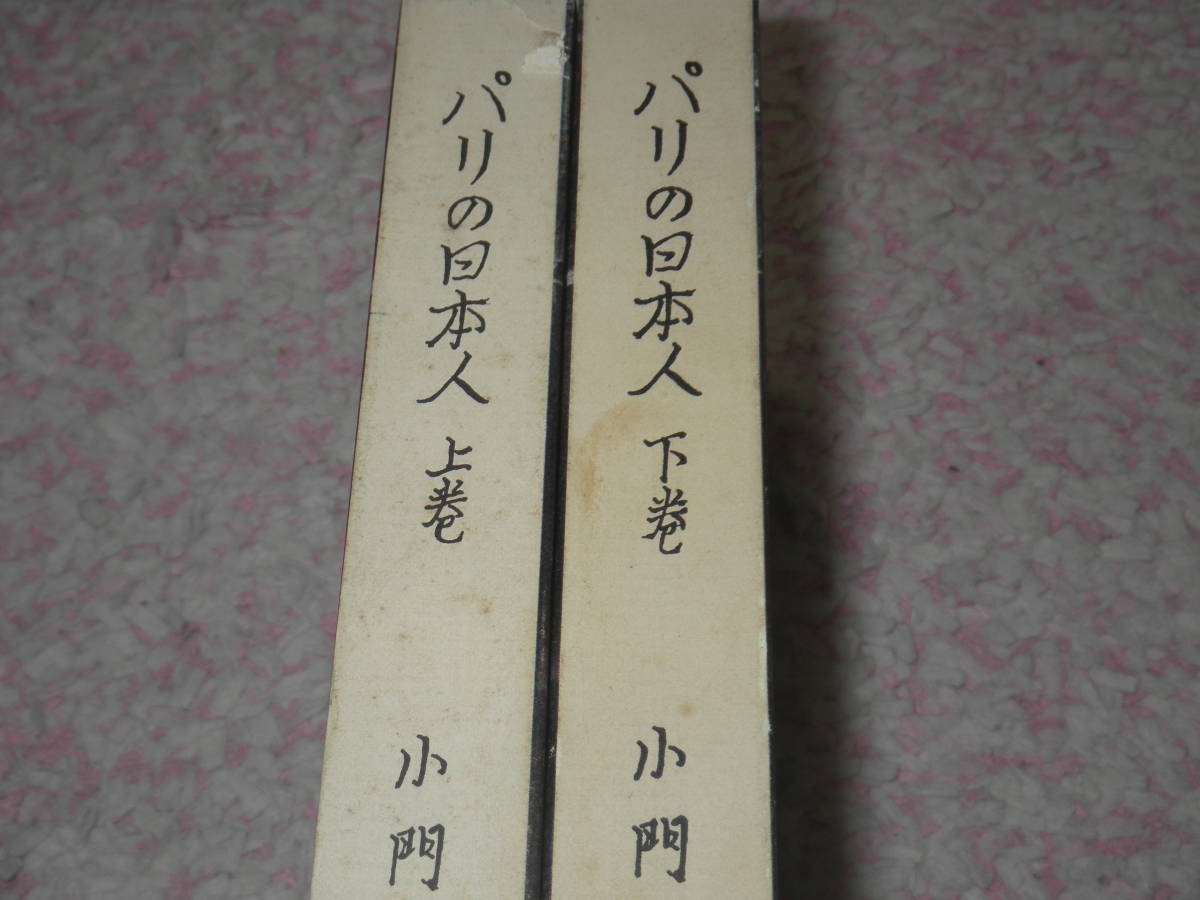 パリの日本人 上巻 小門
パリの日本人 下巻 小門